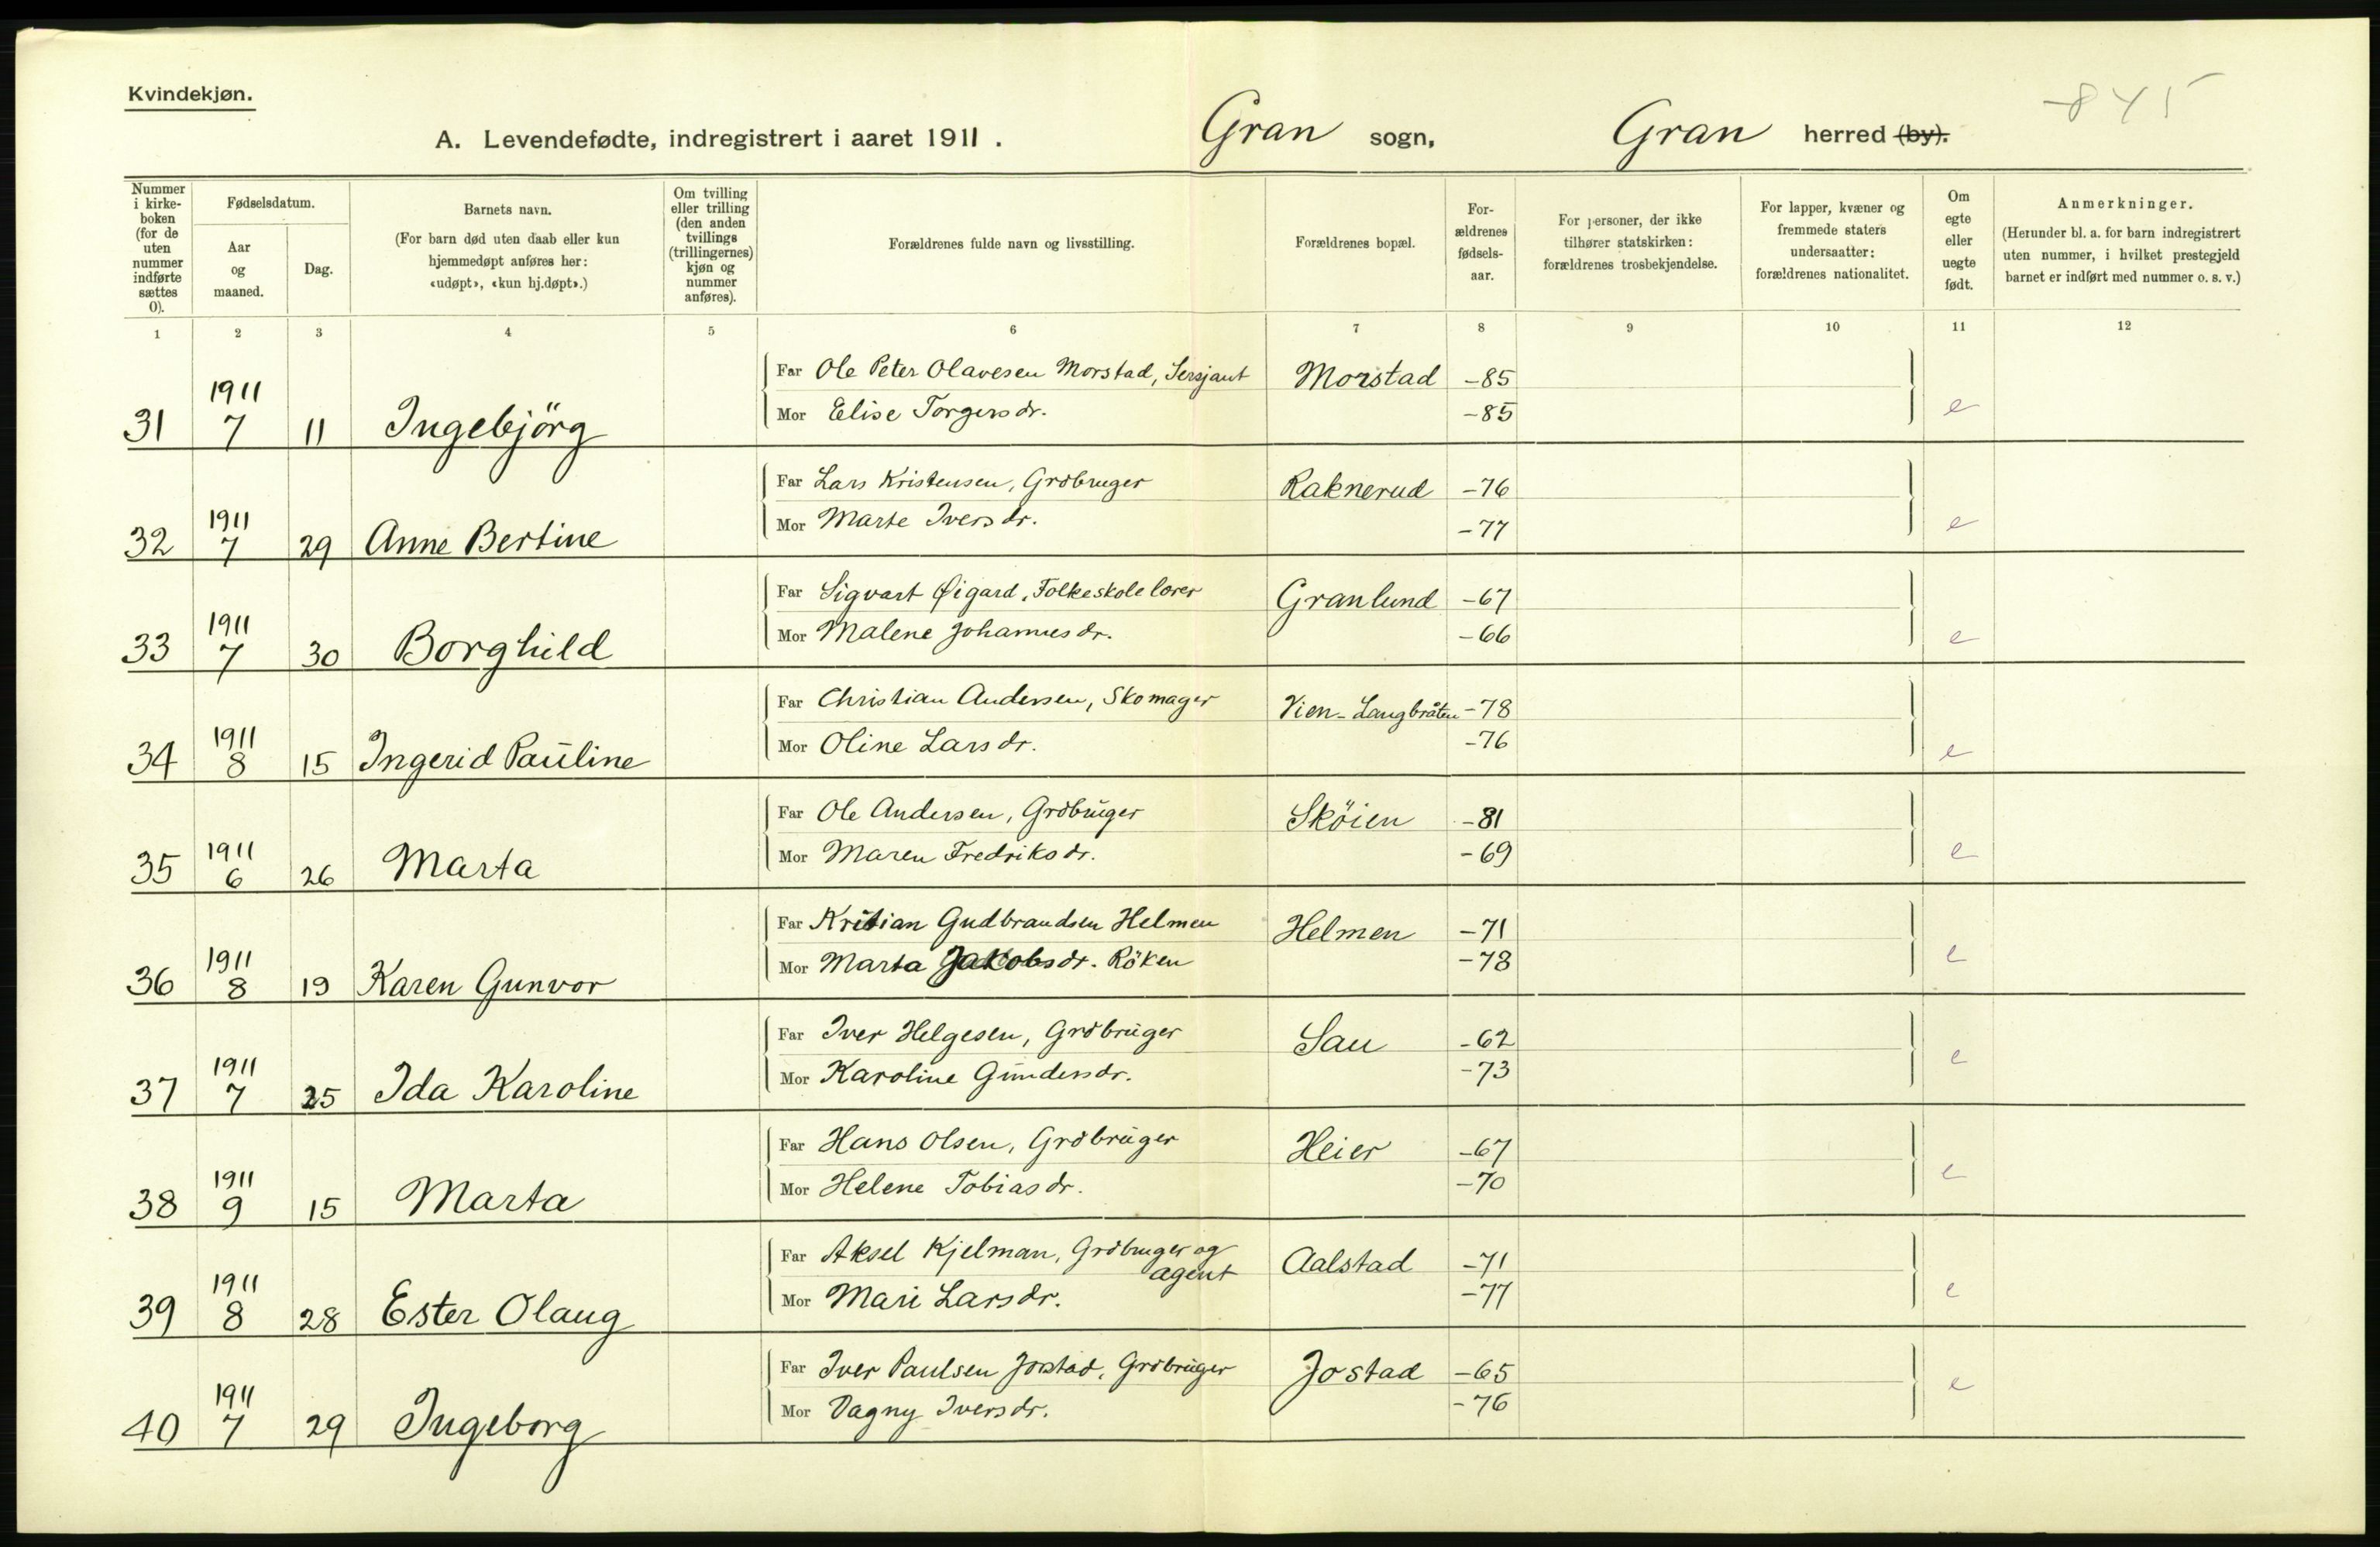 Kvindekjøn.
-845
A. Levendefødte, indregistrert i aaret 1911. Gran sogn, Gran herred (by).
Nummer i kirkeboken (for de uten nummer indførte sættes 0).
Fødselsdatum.
Aar og maaned.
Dag.
Barnets navn.
(For barn død uten daab eller kun hjemmedøpt anføres her: «udøpt», «kun hj.døpt».)
Om tvilling eller trilling (den anden tvillings (trillingernes) kjøn og nummer anføres).
Forældrenes fulde navn og livsstilling.
Forældrenes bopæl.
Forældrenes fødselsaar.
For personer, der ikke tilhører statskirken: forældrenes trosbekjendelse.
For lapper, kvæner og fremmede staters undersaatter: forældrenes nationalitet.
Om egte eller uegte født.
Anmerkninger.
(Herunder bl. a. for barn indregistrert uten nummer, i hvilket prestegjeld barnet er indført med nummer o. s. v.)
1 2 3 4 5 6 7 8 9 10 11 12
31 1911 7 11 Ingebjörg Far Ole Peter Olavesen Morstad, Sersjant Morstad -85
Mor Elise Torgersdr. -85 e
32 1911 7 29 Anne Bertine Far Lars Kristensen, Grdbruger Raknerud -76
Mor Marte Iversdr. -77 e
33 1911 7 30 Borghild Far Sigvart Øigard, Folkeskolelærer Granlund -67
Mor Malene Johannesdr. -66 e
34 1911 8 15 Ingerid Pauline Far Christian Andersen, Skomager Vien-Langbråten -78
Mor Oline Larsdr. -76 e
35 1911 6 26 Marta Far Ole Andersen, Grdbruger Sköien -81
Mor Maren Fredriksdr. -69 e
36 1911 8 19 Karen Gunvor Far Kristian Gudbrandsen Helmen Helmen -71
Mor Marta Jakobsdr. Röken -78 e
37 1911 7 25 Ida Karoline Far Iver Helgesen, Grdbruger Sau -62
Mor Karoline Gundersdr. -73 e
38 1911 9 15 Marta Far Hans Olsen, Grdbruger Heier -67
Mor Helene Tobiasdr. -70 e
39 1911 8 28 Ester Olaug Far Aksel Kjelman, Grdbruger og agent Aalstad -71
Mor Mari Larsdr. -77 e
40 1911 7 29 Ingeborg Far Iver Paulsen Jorstad, Grdbruger Jostad -65
Mor Dagny Iversdr. -76 e